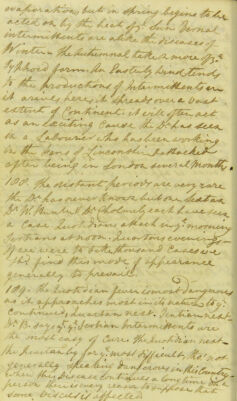 evaporation, but in spring begins to be
acted on by the heat of ye Sun. Vernal
intermittents are alike the diseases of
Winter - the Autumnal take more of ye
Typhoid form. An Easterly wind tends
to the productions of Intermittents in
it arrives here, it spreads over a vast
extent of Continent. it will often act
as an exciting cause the Dr has seen
in a Labourer who has been working
in the Fens of Lincolnshire attacked
after being in London several Months.
108. the distant periods are very rare
the Dr has never known but one Instance
Dr W. Hunter & Dr Cholmely each have seen
a case
attack in ye morning
Tertians at noon, Quartans evening
find this mode of appearance
generally to prevail.
109. the Quotidian fever is most dangerous
as it approaches most in its nature to ye
continued, Quartan next. Tertian next.
Dr B. says yt ye Tertian Intermittents are
the most easy of Cure the Quotidian next
the Quartan by far ye most difficult, tho' not
generally speaking dangerous in this Country
when this disease continues a long time in a
person there is every reason to suppose that
some viscus is affected